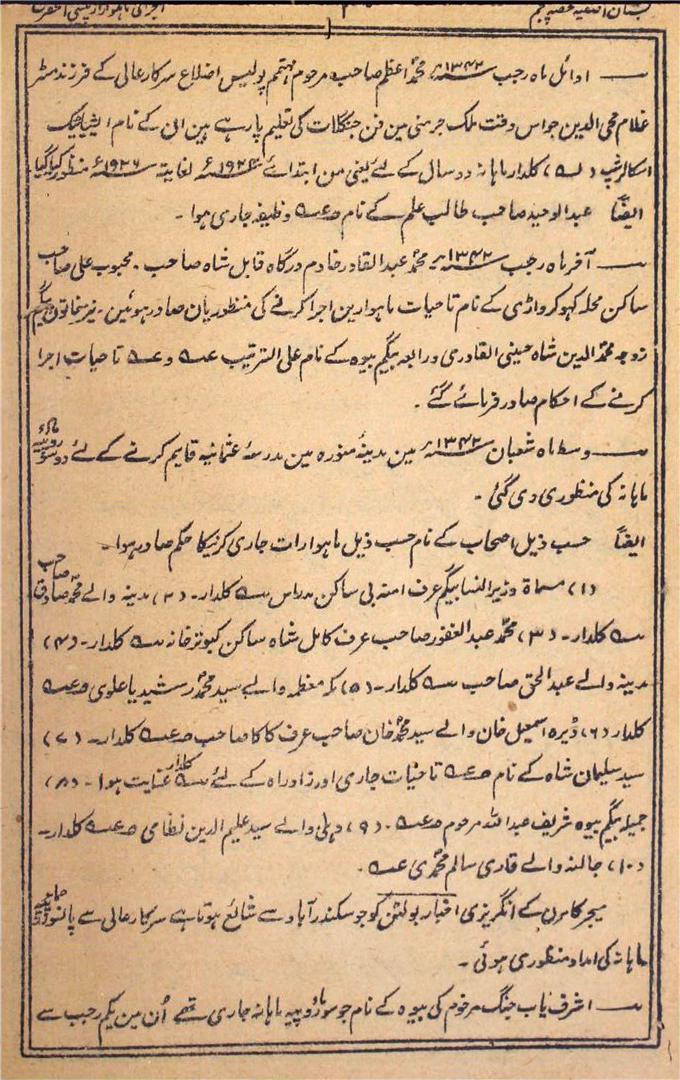 بستان آصفیہ حصہ پنجم
اوائل ماہ رجب ۱۳۴۲ھ محمد اعظم صاحب مرحوم مہتمم پولیس اضلاع سرکار عالی کے فرزند مسٹر
غلام محی الدین جو اس وقت ملک جرمنی مین فن جنگلات کی تعلیم پا رہے ہین ان کے نام ایشیاٹیک
اسکالرشپ ( ) کلدار ماہانہ دو سال کے لئے یعنی من ابتدائے ۱۹۲۴ء لغایتہ ۱۹۲۶ء منظور کیا گیا
ایضاً عبدالوحید صاحب طالب علم کے نام وظیفہ جاری ہوا ۔
آخر ماہ رجب ۱۳۴۲ھ محمد عبدالقادر خادم درگاہ قابل شاہ صاحب ۔ محبوب علی صاحب
ساکن محلہ کہوکرواڑی کے نام تا حیات ماہوارین اجرا کرنے کی منظوریان صادر ہوئین ۔ نیز خاتون بیگم
زوجہ محمد الدین شاہ حسینی القادری و رابعہ بیگم بیوہ کے نام علی الترتیب و تا حیات اجرا
کرنے کے احکام صادر فرمائے گئے ۔
وسط ماہ شعبان ۱۳۴۲ھ مین مدینۂ منورہ مین مدرسۂ عثمانیہ قایم کرنے کے لئے دو سو روپیہ
ماہانہ کی منظوری دی گئی ۔
ایضاً حسب ذیل اصحاب کے نام حسب ذیل ماہوارات جاری کرنیکا حکم صادر ہوا ۔
(۱) مسماۃ وزیر النسا بیگم عرف امتہ بی ساکن مدراس کلدار ۔ (۲) مدینہ والے محمد صادق صاحب
کلدار ۔ (۳) محمد عبدالغفور صاحب عرف کامل شاہ ساکن کبوتر خانہ کلدار ۔ (۴)
مدینہ والے عبدالحق صاحب کلدار ۔ (۵) مکہ معظمہ والے سید محمد رشید یا علوی
کلدار (۶) ڈیرہ اسمعیل خان والے سید محمد خان صاحب عرف کاکا صاحب کلدار ۔ (۷)
سید سلیمان شاہ کے نام تا حیات جاری اور زاد راہ کے لئے کلدار عنایت ہوا ۔ (۸)
جمیلہ بیگم بیوہ شریف عبداللہ مرحوم ۔ (۹) دہلی والے سید علیم الدین نظامی کلدار ۔
(۱۰) جالنہ والے قاری سالم محمدی ۔
میجر کامرن کے انگریزی اخبار بولٹن کو جو سکندرآباد سے شائع ہوتا ہے سرکار عالی سے پانسو روپیہ
ماہانہ کی امداد منظوری ہوئی ۔
اشرف یاب جنگ مرحوم کی بیوہ کے نام جو سو روپیہ ماہانہ جاری تھے اُن مین یکم رجب سے